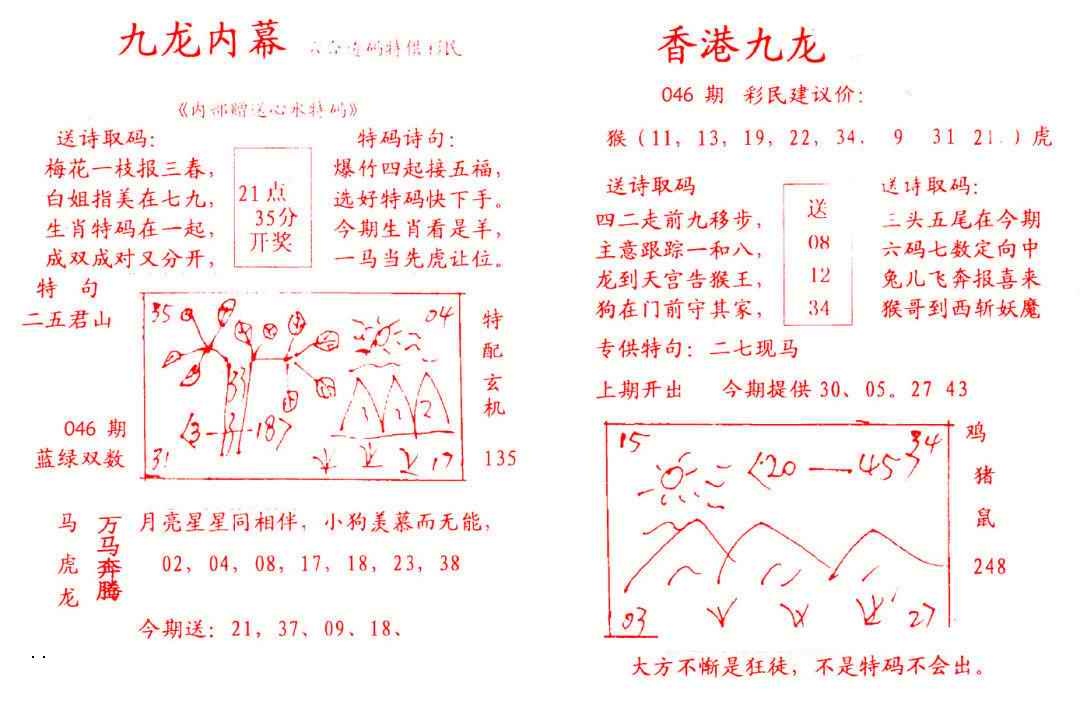 九龙内幕
码特供彩民
《内部赠送心水特码》
送诗取码:
梅花一枝报三春,
白姐指美在七九,
生肖特码在一起,
成双成对又分开,
21点
35分
开奖
特码诗句:
爆竹四起接五福,
选好特码快下手。
今期生肖看是羊,
一马当先虎让位。
特 句
二五君山
046 期
蓝绿双数
35
04
33
1 3 2
<3 18>
31
17
特配玄机
135
马虎龙
万马奔腾
月亮星星同相伴, 小狗羡慕而无能,
02, 04, 08, 17, 18, 23, 38
今期送: 21, 37、09、18、
香港九龙
046 期 彩民建议价:
猴(11, 13, 19, 22, 34. 9 31 21.)虎
送诗取码
四二走前九移步,
主意跟踪一和八,
龙到天宫告猴王,
狗在门前守其家,
送
08
12
34
送诗取码:
三头五尾在今期
六码七数定向中
兔儿飞奔报喜来
猴哥到西斩妖魔
专供特句: 二七现马
上期开出 今期提供 30、05。27 43
15
34
<20—45>
03
27
鸡
猪
鼠
248
大方不惭是狂徒, 不是特码不会出。